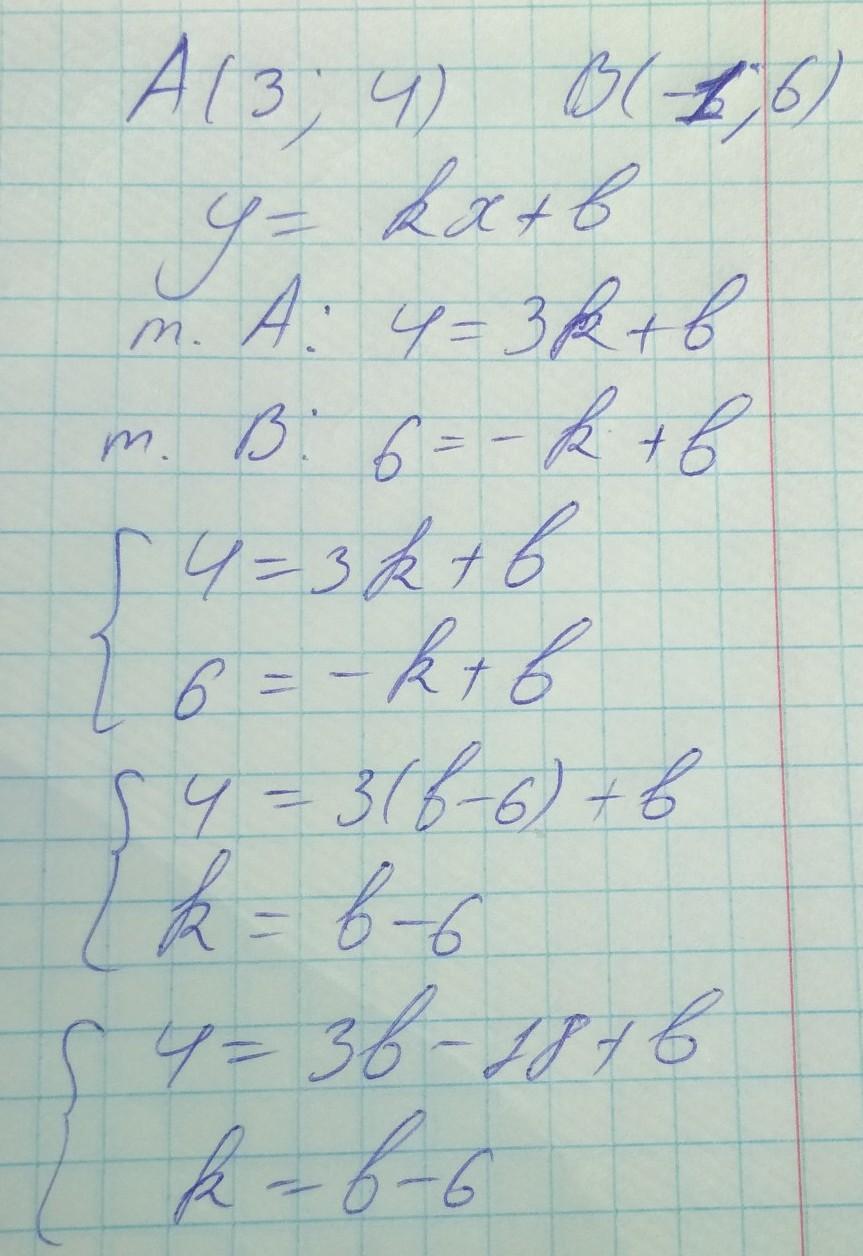 A(3; 4) B(-1; 6)
y = kx + b
т. A: 4 = 3k + b
т. B: 6 = -k + b
4 = 3k + b
6 = -k + b
4 = 3(b-6) + b
k = b-6
4 = 3b - 18 + b
k = b-6